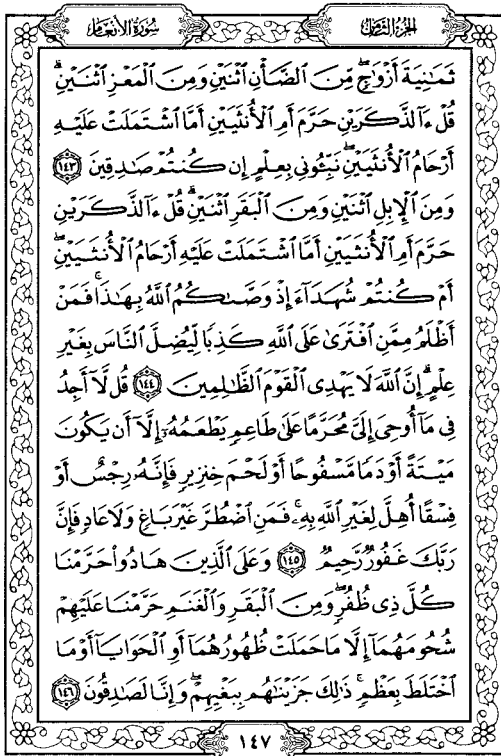 الجزء الثامن
سورة الأنعام
ثَمَٰنِيَةَ أَزْوَٰجٍۖ مِّنَ ٱلضَّأْنِ ٱثْنَيْنِ وَمِنَ ٱلْمَعْزِ ٱثْنَيْنِۗ
قُلْ ءَآلذَّكَرَيْنِ حَرَّمَ أَمِ ٱلْأُنثَيَيْنِ أَمَّا ٱشْتَمَلَتْ عَلَيْهِ
أَرْحَامُ ٱلْأُنثَيَيْنِۖ نَبِّـُٔونِى بِعِلْمٍ إِن كُنتُمْ صَٰدِقِينَ ١٤٣
وَمِنَ ٱلْإِبِلِ ٱثْنَيْنِ وَمِنَ ٱلْبَقَرِ ٱثْنَيْنِۗ قُلْ ءَآلذَّكَرَيْنِ
حَرَّمَ أَمِ ٱلْأُنثَيَيْنِ أَمَّا ٱشْتَمَلَتْ عَلَيْهِ أَرْحَامُ ٱلْأُنثَيَيْنِۖ
أَمْ كُنتُمْ شُهَدَآءَ إِذْ وَصَّىٰكُمُ ٱللَّهُ بِهَٰذَاۚ فَمَنْ
أَظْلَمُ مِمَّنِ ٱفْتَرَىٰ عَلَى ٱللَّهِ كَذِبًا لِّيُضِلَّ ٱلنَّاسَ بِغَيْرِ
عِلْمٍۗ إِنَّ ٱللَّهَ لَا يَهْدِى ٱلْقَوْمَ ٱلظَّٰلِمِينَ ١٤٤ قُل لَّآ أَجِدُ
فِى مَآ أُوحِىَ إِلَىَّ مُحَرَّمًا عَلَىٰ طَاعِمٍ يَطْعَمُهُۥٓ إِلَّآ أَن يَكُونَ
مَيْتَةً أَوْ دَمًا مَّسْفُوحًا أَوْ لَحْمَ خِنزِيرٍ فَإِنَّهُۥ رِجْسٌ أَوْ
فِسْقًا أُهِلَّ لِغَيْرِ ٱللَّهِ بِهِۦۚ فَمَنِ ٱضْطُرَّ غَيْرَ بَاغٍ وَلَا عَادٍ فَإِنَّ
رَبَّكَ غَفُورٌ رَّحِيمٌ ١٤٥ وَعَلَى ٱلَّذِينَ هَادُوا۟ حَرَّمْنَا
كُلَّ ذِى ظُفُرٍۖ وَمِنَ ٱلْبَقَرِ وَٱلْغَنَمِ حَرَّمْنَا عَلَيْهِمْ
شُحُومَهُمَآ إِلَّا مَا حَمَلَتْ ظُهُورُهُمَآ أَوِ ٱلْحَوَايَآ أَوْ مَا
ٱخْتَلَطَ بِعَظْمٍۚ ذَٰلِكَ جَزَيْنَٰهُم بِبَغْيِهِمْۖ وَإِنَّا لَصَٰدِقُونَ ١٤٦
١٤٧